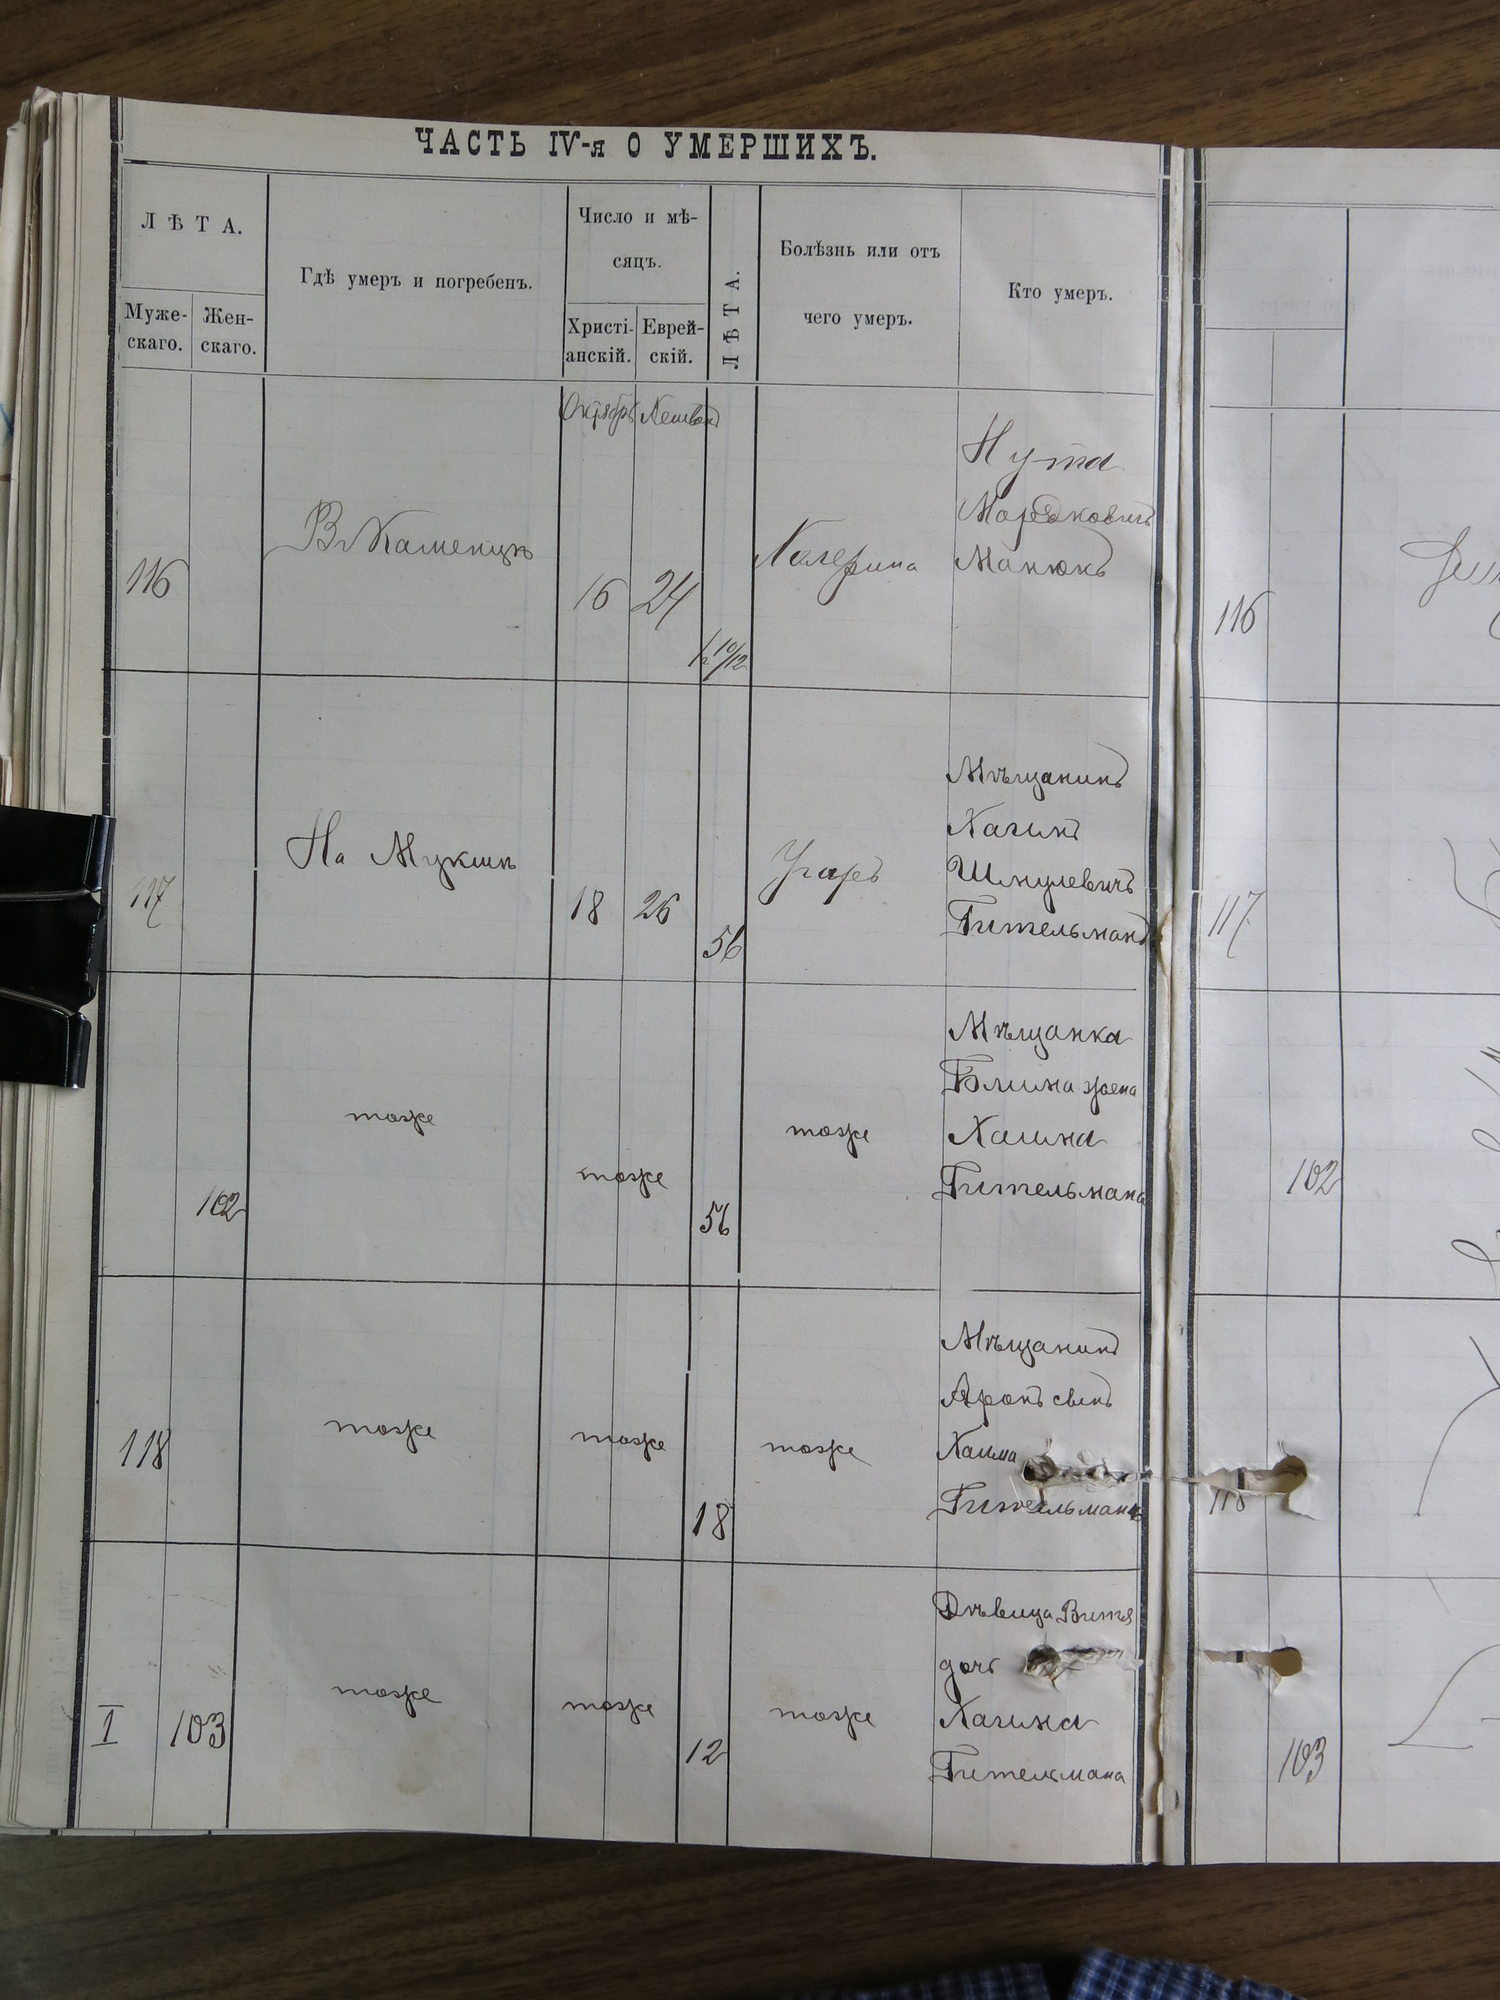 ЧАСТЬ IV-я О УМЕРШИХЪ.
ЛѢТА.
Муже-
скаго.
Жен-
скаго.
Гдѣ умеръ и погребенъ.
Число и мѣ-
сяцъ.
Христі-
анскій.
Еврей-
скій.
ЛѢТА.
Болѣзнь или отъ
чего умеръ.
Кто умеръ.
Октябрь
116
Въ Каменцѣ
16
24
10/12
Холерина
Нута
Мордковичъ
Манюкъ
116
117
На Мукшѣ
18
26
56
Угаръ
Мѣщанинъ
Хаимъ
Шмулевичъ
Гительманъ
117
102
тоже
тоже
56
тоже
Мѣщанка
жена
Хаима
Гительмана
102
118
тоже
тоже
18
тоже
Мѣщанинъ
Аронъ сынъ
Хаима
Гительмана
118
I
103
тоже
тоже
12
тоже
Дѣвица Витя
дочь
Хаима
Гительмана
103